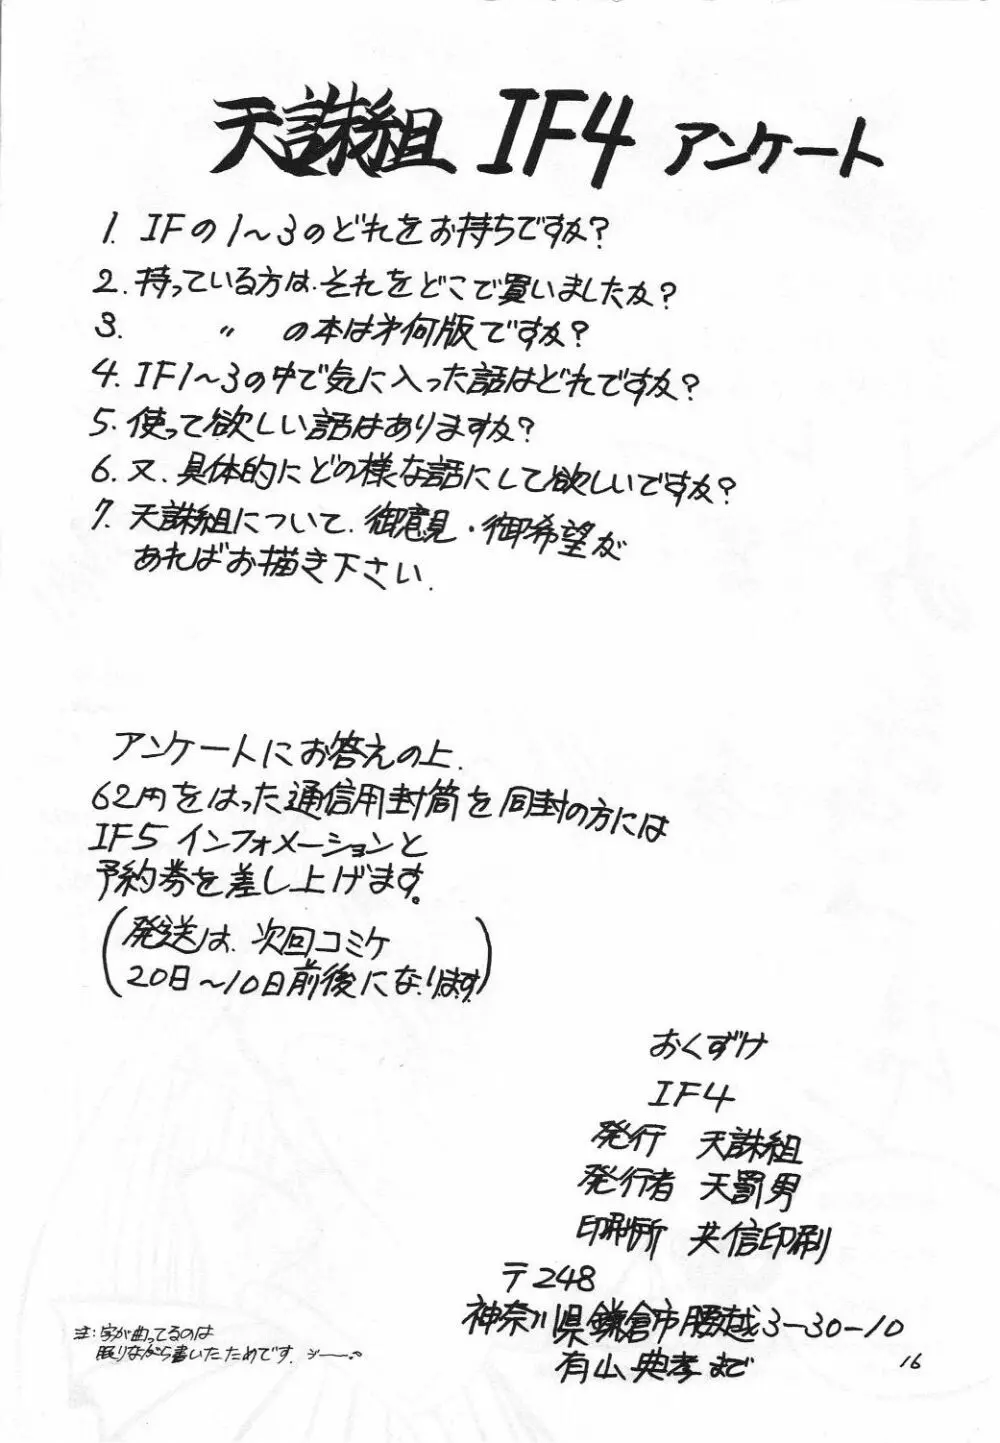 天誅組 IF4 アンケート
1. IFの1～3のどれをお持ちですか?
2. 持っている方は、それをどこで買いましたか?
3. 〃 の本は才何版ですか?
4. IF1～3の中で気に入った話はどれですか?
5. 使って欲しい話はありますか?
6. 又、具体的にどの様な話にして欲しいですか?
7. 天誅組について、御意見・御希望が
あればお描き下さい.
アンケートにお答えの上.
62円をはった通信用封筒を同封の方には
IF5 インフォメーションと
予約券を差し上げます。
(発送は、次回コミケ
20日～10日前後になります)
おくずけ
IF4
発行 天誅組
発行者 天罰男
印刷所 共信印刷
〒248
神奈川県鎌倉市腰越3-30-10
有山典孝まで
注:字が曲ってるのは
眠りながら書いたためです.
16